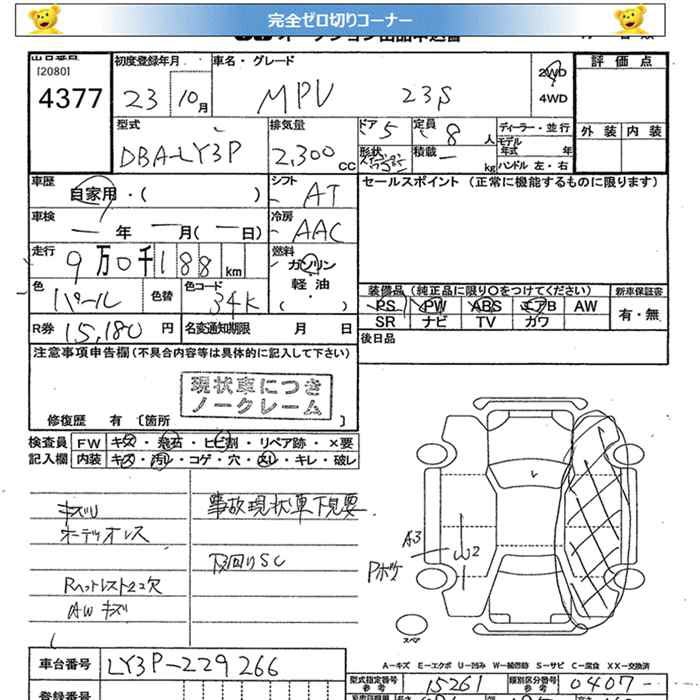 完全ゼロ切りコーナー
出品番号 初度登録年月 車名・グレード 評価点
[2080]
4377 23 10月 MPV 23S 2WD
4WD
型式 排気量 ドア 定員 ディーラー・並行 外装 内装
DBA-LY3P 2,300cc 5 8人 モデル年式 年
形状 積載 kg ハンドル 左・右
車歴 シフト セールスポイント (正常に機能するものに限ります)
自家用・( ) AT
車検 冷房
一年 一月(一日) AAC
走行 燃料
9万0千188km ガソリン
軽油
( ・ )
色 色替 色コード 装備品(純正品に限り〇をつけてください) 新車保証書
パール 34K PS PW ABS エアB AW 有・無
SR ナビ TV カワ
R券 15,180円 名変通知期限 月 日 後日品
注意事項申告欄(不具合内容等は具体的に記入して下さい)
現状車につき
ノークレーム
修復歴 有 [箇所 ]
検査員 FW キズ・飛石・ヒビ割・リペア跡・×要
記入欄 内装 キズ・汚レ・コゲ・穴・スレ・キレ・破レ
キズU 事故現状車下見要
オーディオレス
下回りSC
Rヘットレスト2コ欠
AWキズ
A3
W2
Pボケ
スペア
A－キズ E－エクボ U－凹み W－補修跡 S－サビ C－腐食 XX－交換済
車台番号 LY3P-229266
型式指定番号 参考 15261 類別区分番号 参考 0407
登録番号